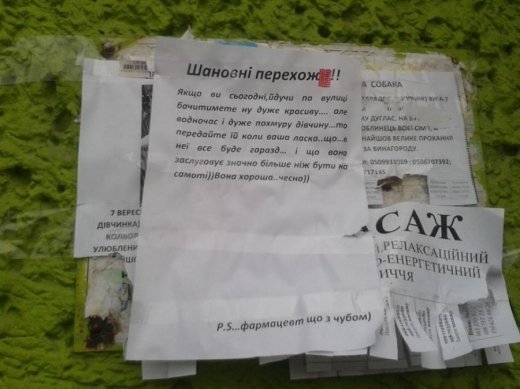 Шановні перехожі!!
Якщо ви сьогодні,йдучи по вулиці
бачитимете ну дуже красиву.... але
водночас і дуже похмуру дівчину...то
передайте їй коли ваша ласка..що..в
неї все буде гаразд... і що вона
заслуговує значно більше ніж бути на
самоті))Вона хороша..чесно))
P.S...фармацевт що з чубом)
СОБАКА
ДУГЛАС. НА
ВСІЄЇ СІМ'Ї, А
НАЙШОВ ВЕЛИКЕ ПРОХАННЯ
ЗА ВИНАГОРОДУ.
7 ВЕРЕС
ДІВЧИНКА
КОЛЬОР
УЛЮБЛЕНИ
САЖ
РЕЛАКСАЦІЙНИЙ
О-ЕНЕРГЕТИЧНИЙ
ИЧЧЯ